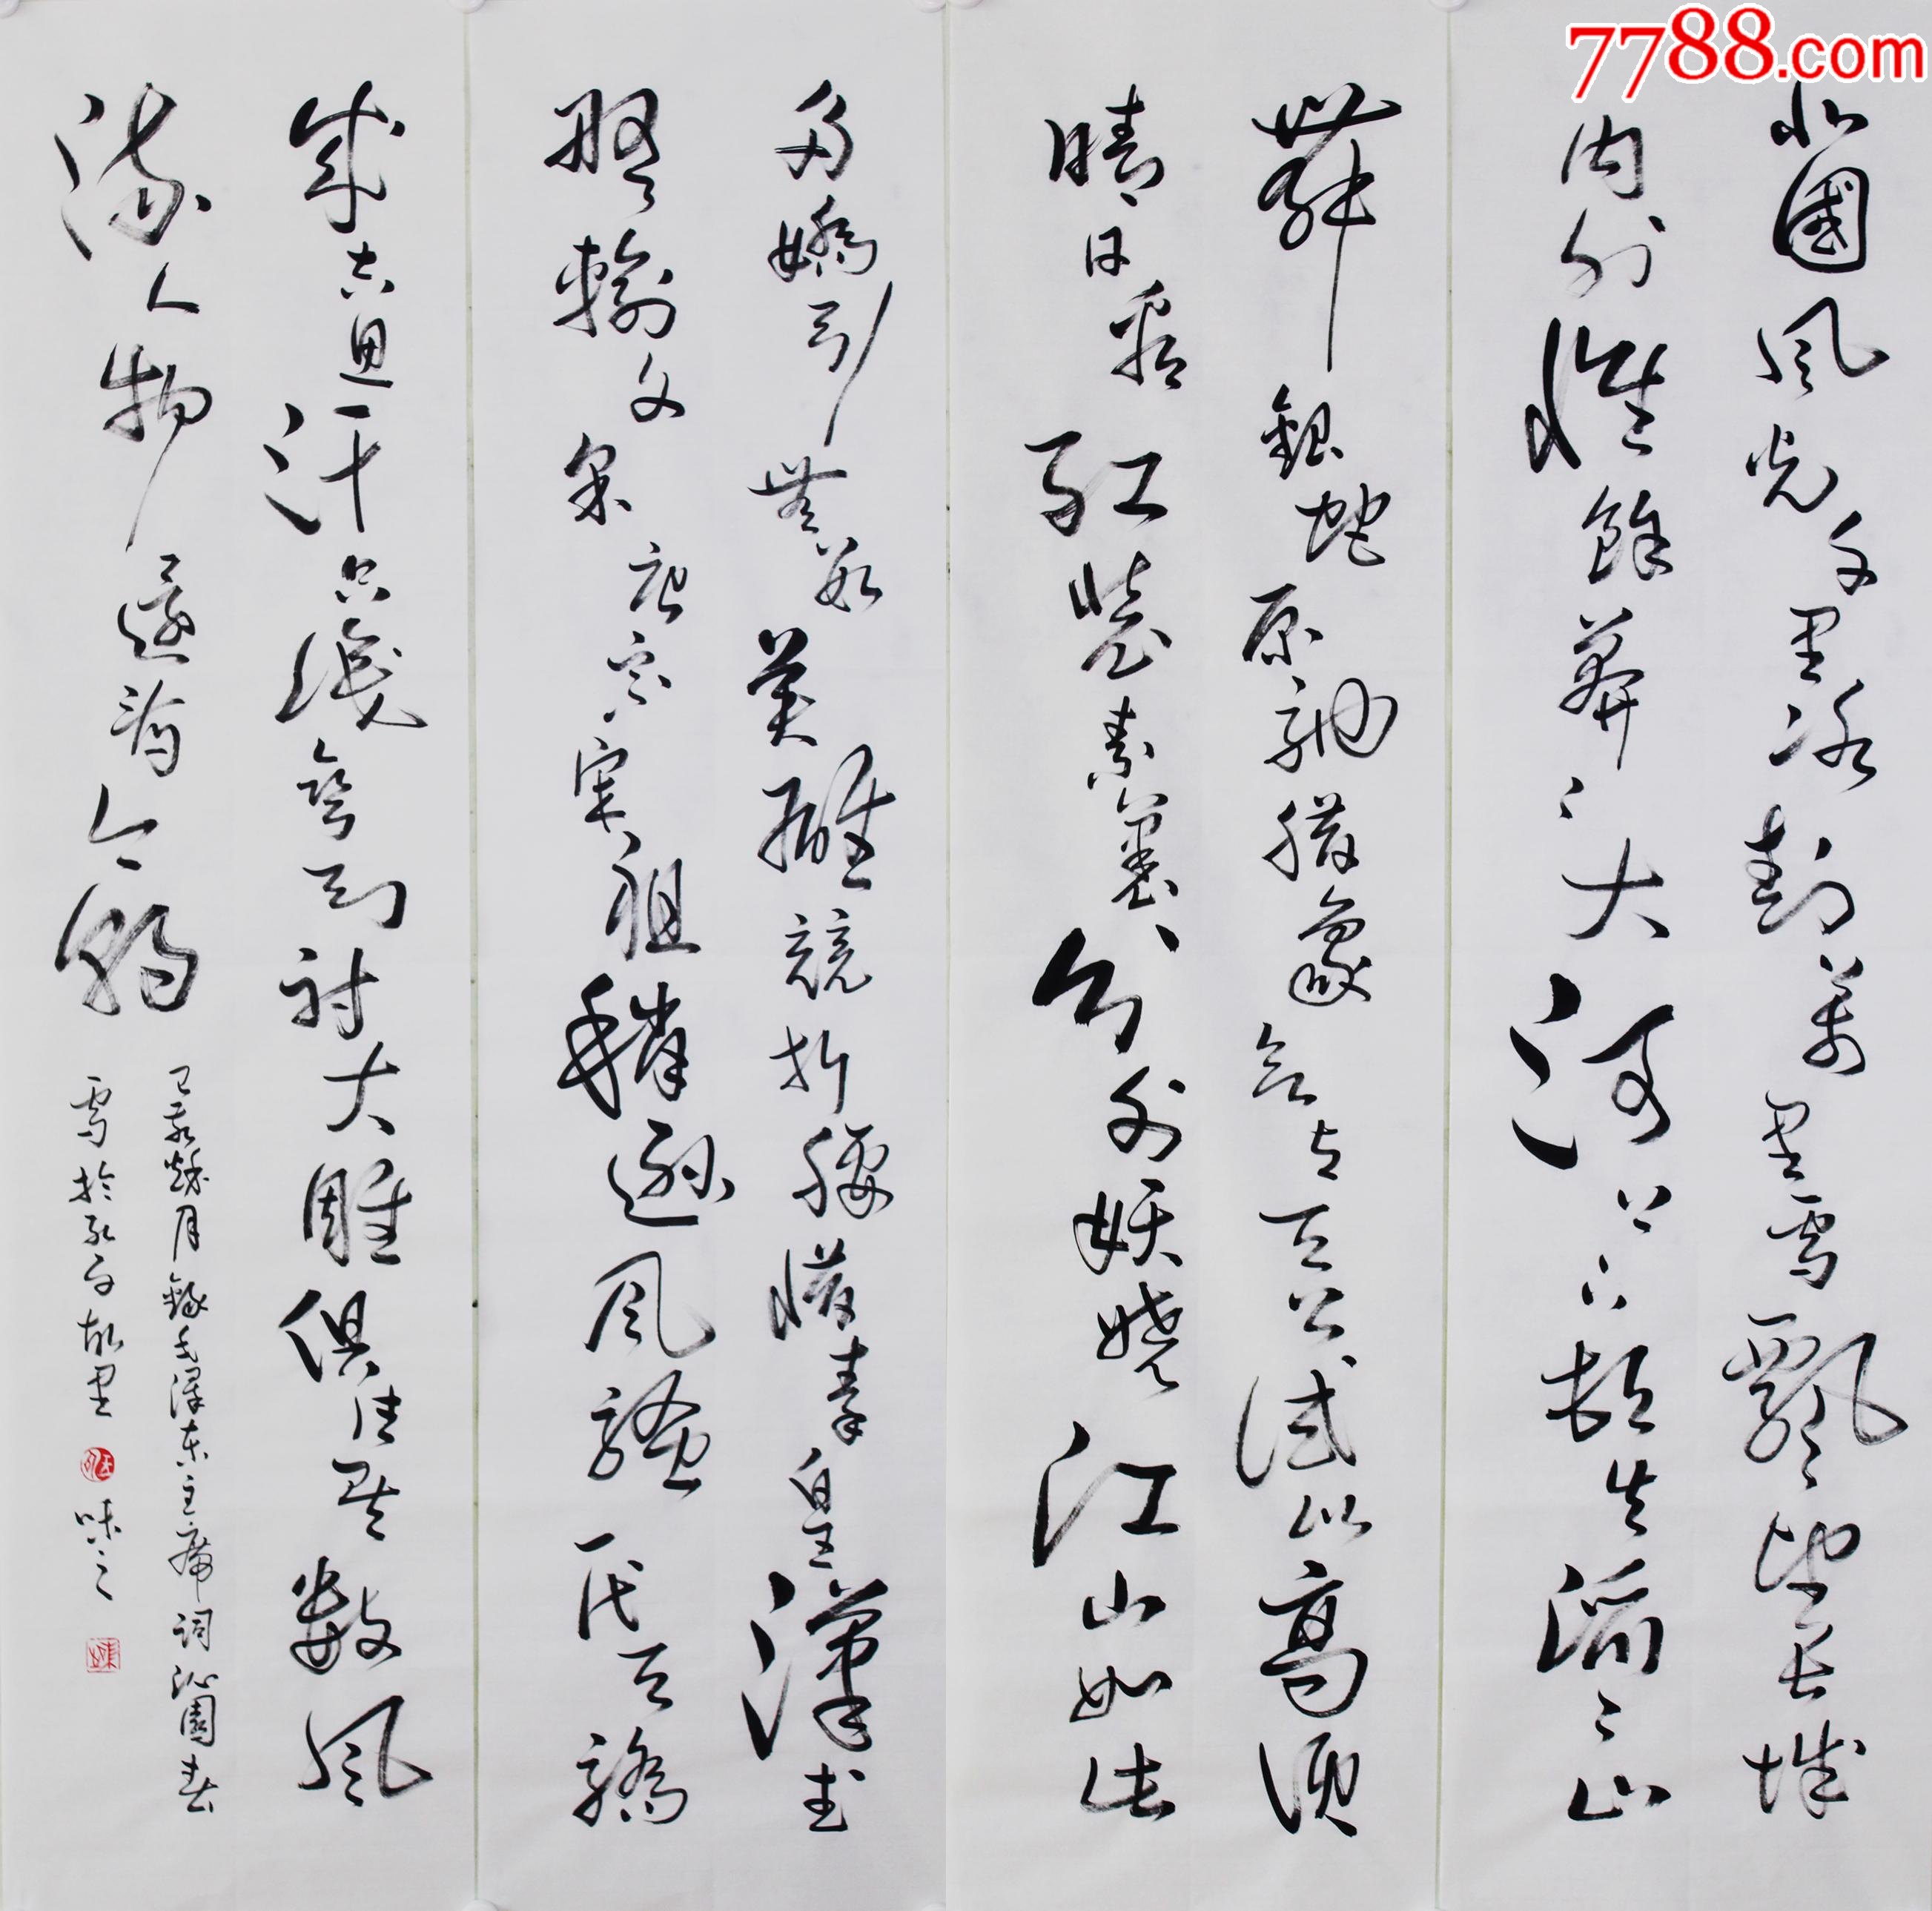 7788.com
北國風光千里冰封萬里雪飄望長城
内外惟餘莽々大河上下頓失滔々山
舞銀蛇原馳臘象欲与天公試比高須
晴日看紅裝素裹分外妖嬈江山如此
多嬌引無數英雄競折腰惜秦皇漢武
略輸文采唐宗宋祖稍遜風騷一代天驕
成吉思汗只識彎弓射大雕俱往矣數風
流人物還看今朝
己亥秋月錄毛澤東主席詞沁園春
雪於孔子故里 味之